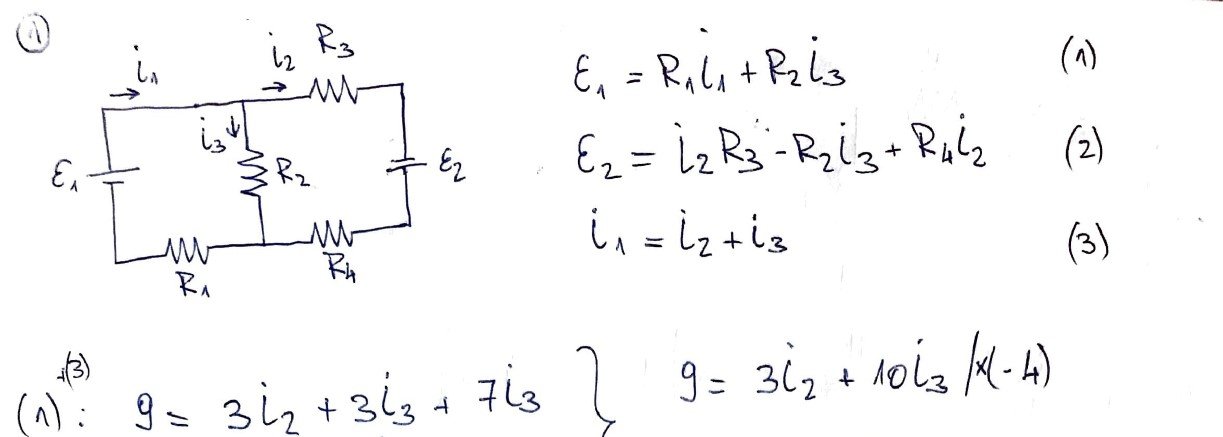 ①
i₁ i₂ R₃
i₃ R₂
ℰ₁ ℰ₂
R₁ R₄
ℰ₁ = R₁i₁ + R₂i₃ (1)
ℰ₂ = i₂R₃ - R₂i₃ + R₄i₂ (2)
i₁ = i₂ + i₃ (3)
(1)+(3): 9 = 3i₂ + 3i₃ + 7i₃ } 9 = 3i₂ + 10i₃ /x(-4)